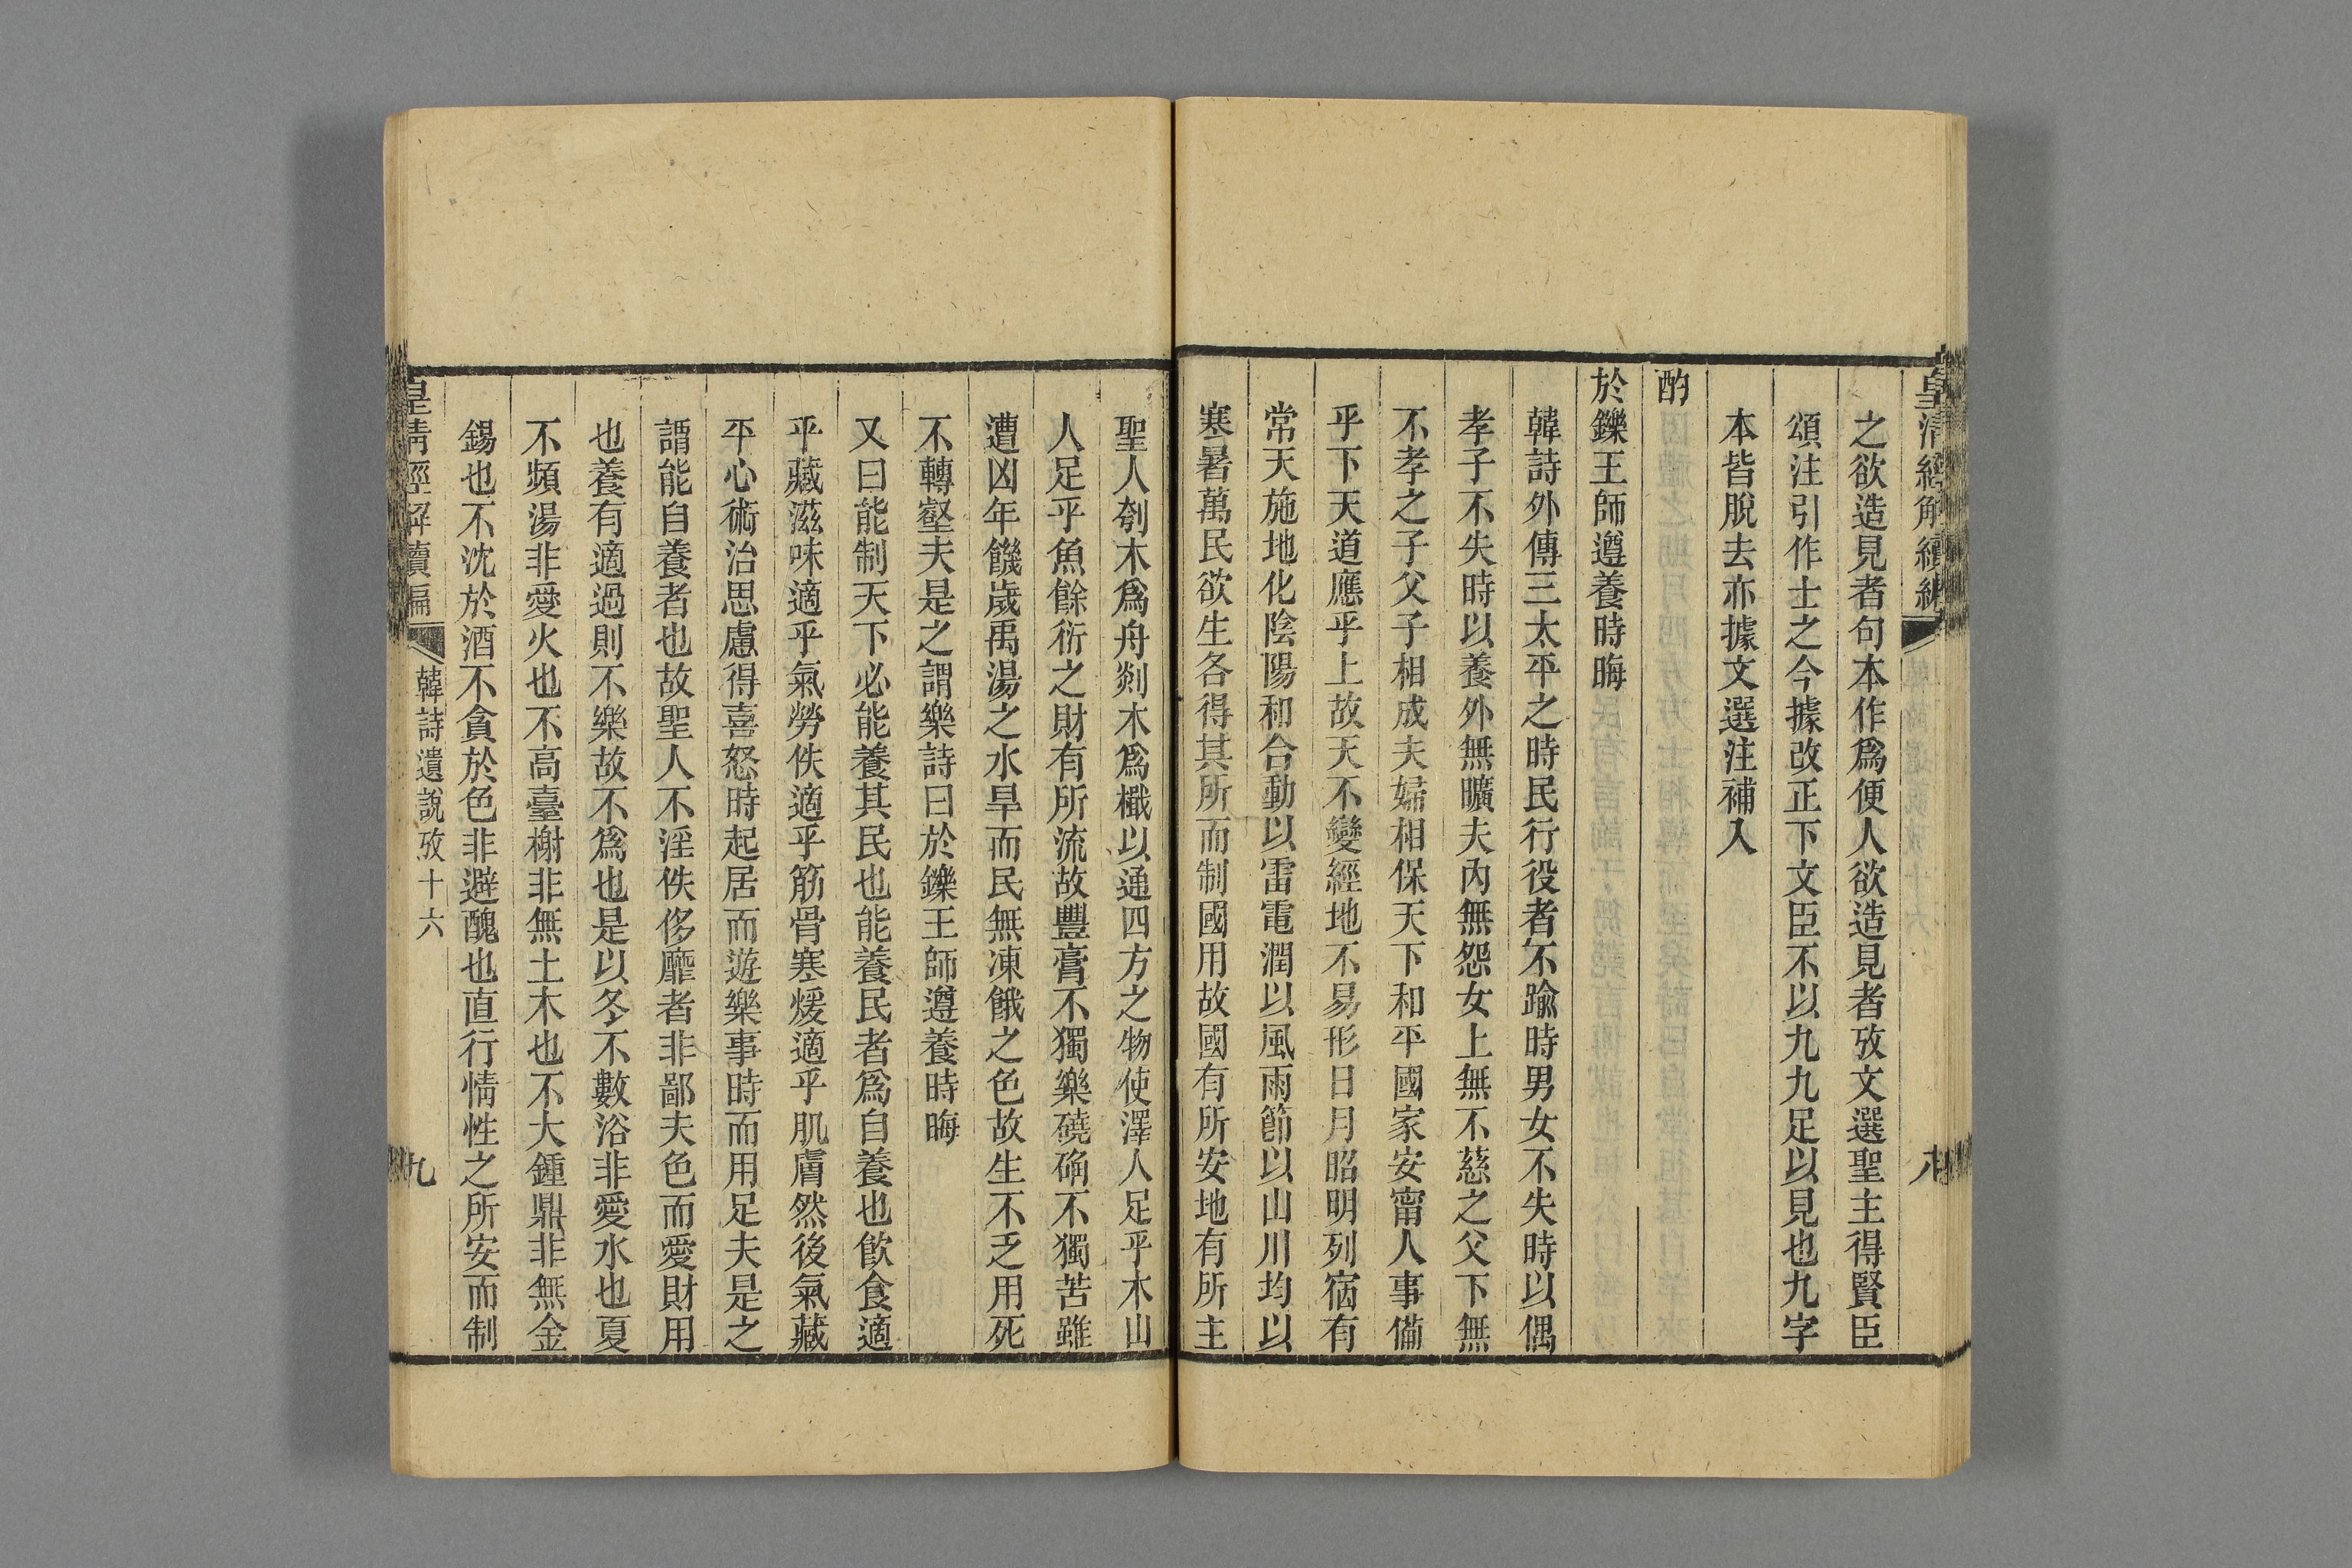 皇清經解續編
八
之欲造見者句本作爲便人欲造見者攷文選聖主得賢臣
頌注引作士之今據改正下文臣不以九九足以見也九字
本皆脫去亦據文選注補入
酌
於鑠王師遵養時晦
韓詩外傳三太平之時民行役者不踰時男女不失時以偶
孝子不失時以養外無曠夫內無怨女上無不慈之父下無
不孝之子父子相成夫婦相保天下和平國家安甯人事備
乎下天道應乎上故天不變經地不易形日月昭明列宿有
常天施地化陰陽和合動以雷電潤以風雨節以山川均以
寒暑萬民欲生各得其所而制國用故國有所安地有所主
聖人刳木爲舟剡木爲檝以通四方之物使澤人足乎木山
人足乎魚餘衍之財有所流故豐膏不獨樂磽确不獨苦雖
遭凶年饑歲禹湯之水旱而民無凍餓之色故生不乏用死
不轉壑夫是之謂樂詩曰於鑠王師遵養時晦
又曰能制天下必能養其民也能養民者爲自養也飲食適
乎藏滋味適乎氣勞佚適乎筋骨寒煖適乎肌膚然後氣藏
平心術治思慮得喜怒時起居而遊樂事時而用足夫是之
謂能自養者也故聖人不淫佚侈靡者非鄙夫色而愛財用
也養有適過則不樂故不爲也是以冬不數浴非愛水也夏
不頻湯非愛火也不高臺榭非無土木也不大鍾鼎非無金
錫也不沈於酒不貪於色非避醜也直行情性之所安而制
皇清經解續編
韓詩遺說攷十六
九